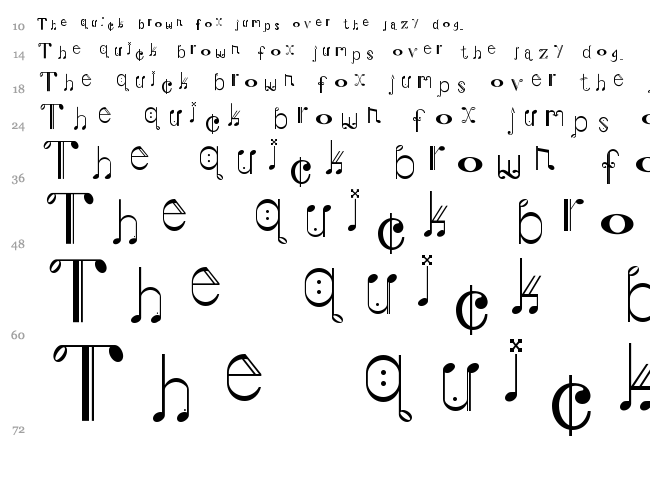 10 The quick brown fox jumps over the lazy dog.
14 The quick brown fox jumps over the lazy dog.
18 The quick brown fox jumps over the
24 The quick brown fox jumps o
36 The quick brown fo
48 The quick bro
60 The quick b
72 The quick